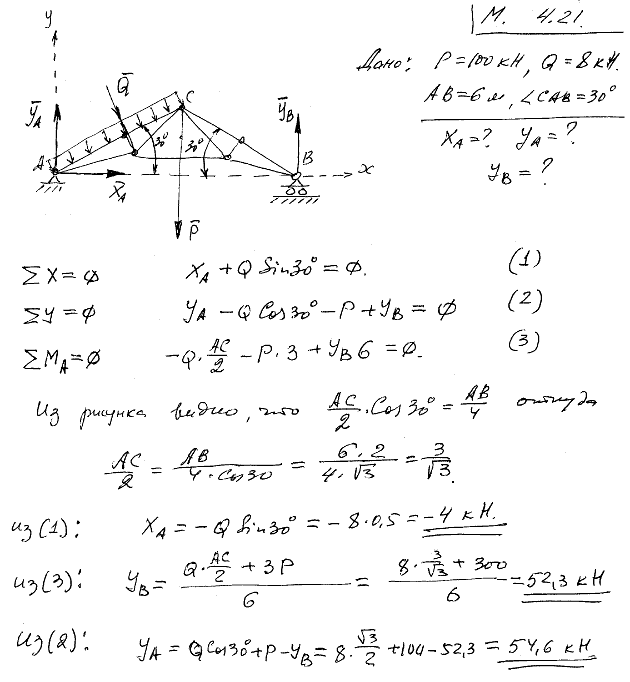 М. 4.21.
Дано: P=100кН, Q=8кН.
AB=6м, ∠CAB=30°
X_A=? Y_A=?
Y_B=?
y
Q̄
C
Ȳ_A
Ȳ_B
30°
30°
A
B
x
X̄_A
P̄
ΣX=0 X_A+Q Sin30°=0. (1)
ΣY=0 Y_A-Q Cos30°-P+Y_B=0 (2)
ΣM_A=0 -Q·AC/2-P·3+Y_B 6=0. (3)
Из рисунка видно, что AC/2·Cos30°=AB/4 откуда
AC/2=AB/(4·Cos30)=(6·2)/(4·√3)=3/√3.
из(1): X_A=-Q Sin30°=-8·0,5=-4 кН.
из(3): Y_B=(Q·AC/2+3P)/6=(8·3/√3+300)/6=52,3 кН
Из(2): Y_A=Q Cos30°+P-Y_B=8·√3/2+104-52,3=54,6 кН